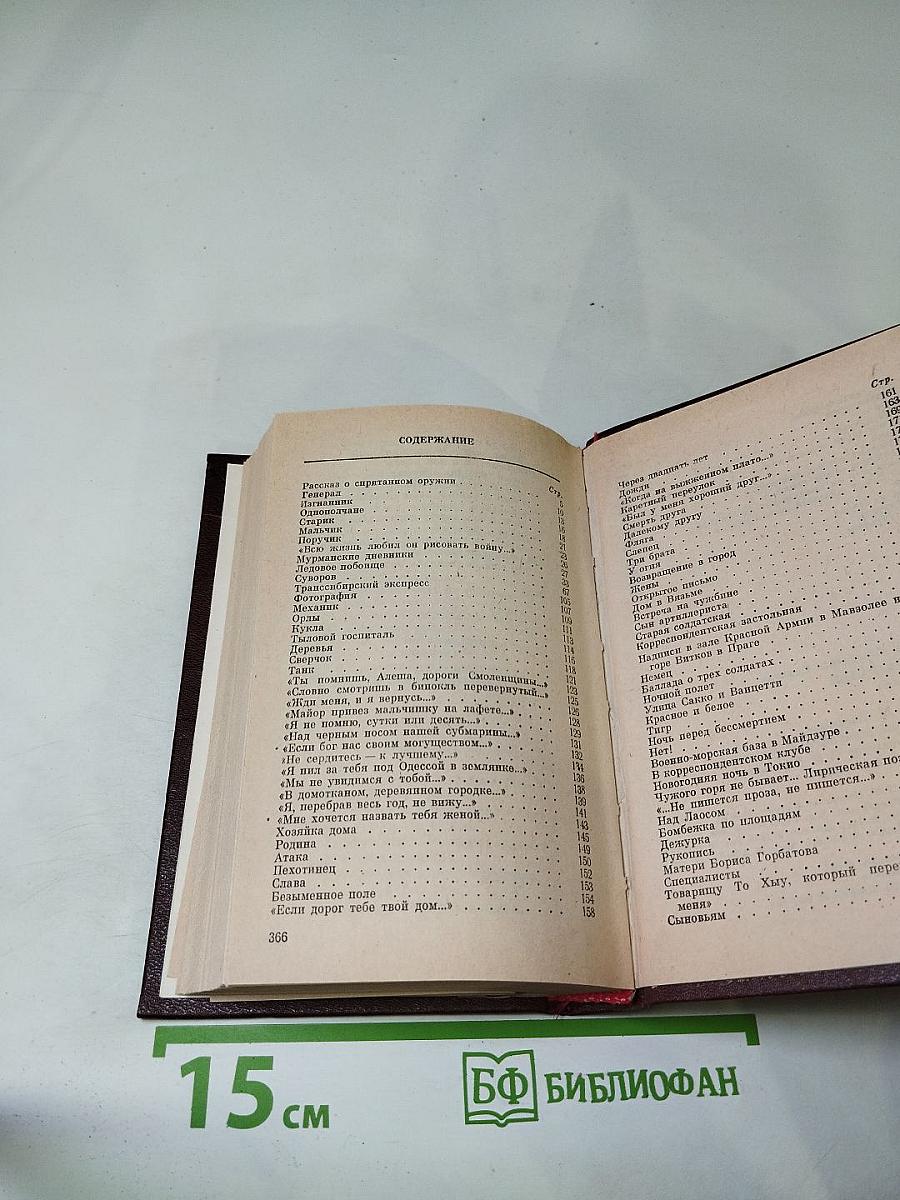 СОДЕРЖАНИЕ
Стр.
Рассказ о спрятанном оружии
Генерал
Изгнанник
Однополчане
Старик
Мальчик
Поручик
«Всю жизнь любил он рисовать войну...»
Мурманские дневники
Ледовое побоище
Суворов
Транссибирский экспресс
Фотография
Механик
Орлы
Кукла
Тыловой госпиталь
Деревья
Сверчок
Танк
«Ты помнишь, Алеша, дороги Смоленщины...» 121
«Словно смотришь в бинокль перевернутый...» 123
«Жди меня, и я вернусь...» 125
«Майор привез мальчишку на лафете...» 126
«Я не помню, сутки или десять...» 128
«Над черным носом нашей субмарины...» 129
«Если бог нас своим могуществом...» 131
«Не сердитесь — к лучшему...» 132
«Я пил за тебя под Одессой в землянке...» 134
«Мы не увидимся с тобой...» 136
«В домотканом, деревянном городке...» 138
«Я, перебрав весь год, не вижу...» 139
«Мне хочется назвать тебя женой...» 141
Хозяйка дома 143
Родина 145
Атака 149
Пехотинец 150
Слава 152
Безыменное поле 153
«Если дорог тебе твой дом...» 154
158
366
Стр.
161
163
169
Через двадцать лет
Дожди
«Когда на выжженном плато...»
Каретный переулок
«Был у меня хороший друг...»
Смерть друга
Далекому другу
Фляга
Слепец
Три брата
У огня
Возвращение в город
Жены
Открытое письмо
Дом в Вязьме
Встреча на чужбине
Сын артиллериста
Старая солдатская
Корреспондентская застольная
Надписи в зале Красной Армии в Мавзолее
горе Витков в Праге
Немец
Баллада о трех солдатах
Ночной полет
Улица Сакко и Ванцетти
Красное и белое
Тигр
Ночь перед бессмертием
Нет!
Военно-морская база в Майдзуре
В корреспондентском клубе
Новогодняя ночь в Токио
Чужого горя не бывает... Лирическая
«...Не пишется проза, не пишется...»
Над Лаосом
Бомбежка по площадям
Дежурка
Рукопись
Матери Бориса Горбатова
Специалисты
Товарищу То Хыу, который
меня»
Сыновьям
15 см
БФ БИБЛИОФАН